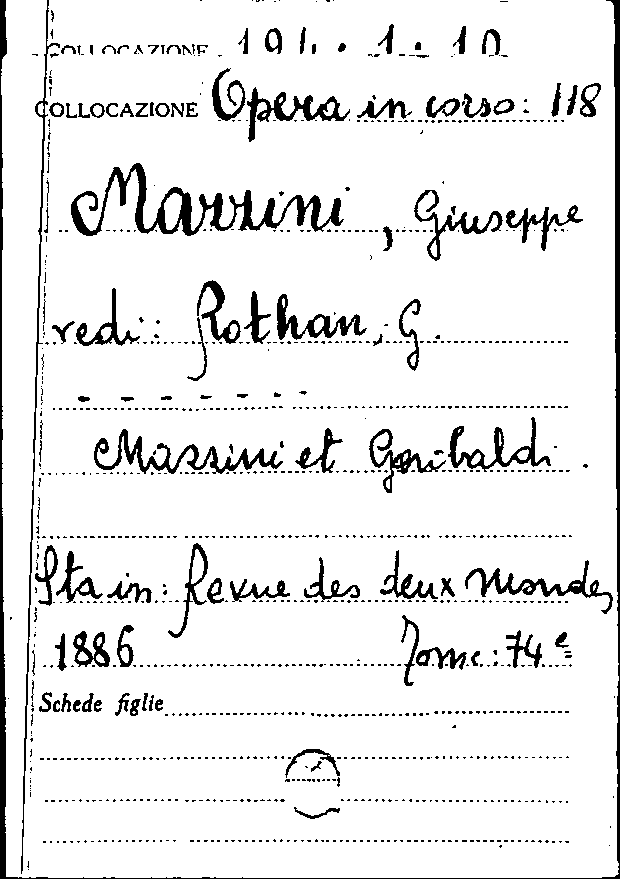 COLLOCAZIONE 
COLLOCAZIONE Opera in corso: 118
Mazzini, Giuseppe
vedi: Rothan, G.
- - - - - - -
Mazzini et Garibaldi.
Sta in: Revue des deux Mondes,
1886 Tome: 74e
Schede figlie